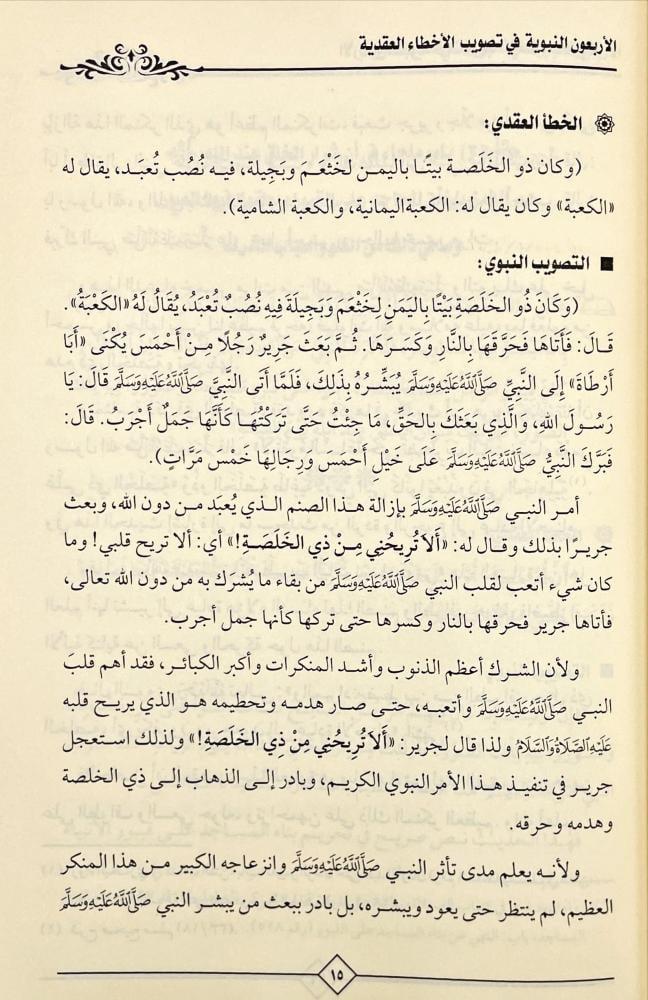 الأربعون النبوية في تصويب الأخطاء العقدية
الخطأ العقدي:
(وكان ذو الخَلَصة بيتًا باليمن لخَثْعَمَ وبَجِيلة، فيه نُصُب تُعبَد، يقال له
«الكعبة» وكان يقال له: الكعبة اليمانية، والكعبة الشامية).
■ التصويب النبوي:
(وَكَانَ ذُو الخَلَصَةِ بَيْتًا بِاليَمَنِ لِخَثْعَمَ وَبَجِيلَةَ فِيهِ نُصُبٌ تُعْبَدُ، يُقَالُ لَهُ «الكَعْبَةُ».
قَالَ: فَأَتَاهَا فَحَرَّقَهَا بِالنَّارِ وَكَسَرَهَا. ثُمَّ بَعَثَ جَرِيرٌ رَجُلًا مِنْ أَحْمَسَ يُكْنَى «أَبَا
أَرْطَاةَ» إِلَى النَّبِيِّ صَلَّى اللَّهُ عَلَيْهِ وَسَلَّمَ يُبَشِّرُهُ بِذَلِكَ، فَلَمَّا أَتَى النَّبِيَّ صَلَّى اللَّهُ عَلَيْهِ وَسَلَّمَ قَالَ: يَا
رَسُولَ اللهِ، وَالَّذِي بَعَثَكَ بِالحَقِّ، مَا جِئْتُ حَتَّى تَرَكْتُهَا كَأَنَّهَا جَمَلٌ أَجْرَبُ. قَالَ:
فَبَرَّكَ النَّبِيُّ صَلَّى اللَّهُ عَلَيْهِ وَسَلَّمَ عَلَى خَيْلِ أَحْمَسَ وَرِجَالِهَا خَمْسَ مَرَّاتٍ).
أمر النبي صَلَّى اللَّهُ عَلَيْهِ وَسَلَّمَ بإزالة هذا الصنم الذي يُعبَد من دون الله، وبعث
جريرًا بذلك وقال له: «أَلاَ تُرِيحُنِي مِنْ ذِي الخَلَصَةِ!» أي: ألا تريح قلبي! وما
كان شيء أتعب لقلب النبي صَلَّى اللَّهُ عَلَيْهِ وَسَلَّمَ من بقاء ما يُشرَك به من دون الله تعالى،
فأتاها جرير فحرقها بالنار وكسرها حتى تركها كأنها جمل أجرب.
ولأن الشرك أعظم الذنوب وأشد المنكرات وأكبر الكبائر، فقد أهم قلبَ
النبي صَلَّى اللَّهُ عَلَيْهِ وَسَلَّمَ وأتعبه، حتى صار هدمه وتحطيمه هو الذي يريح قلبه
عَلَيْهِ الصَّلَاةُ وَالسَّلَامُ ولذا قال لجرير: «أَلاَ تُرِيحُنِي مِنْ ذِي الخَلَصَةِ!» ولذلك استعجل
جرير في تنفيذ هذا الأمر النبوي الكريم، وبادر إلى الذهاب إلى ذي الخلصة
وهدمه وحرقه.
ولأنه يعلم مدى تأثر النبي صَلَّى اللَّهُ عَلَيْهِ وَسَلَّمَ وانزعاجه الكبير من هذا المنكر
العظيم، لم ينتظر حتى يعود ويبشره، بل بادر ببعث من يبشر النبي صَلَّى اللَّهُ عَلَيْهِ وَسَلَّمَ
١٥